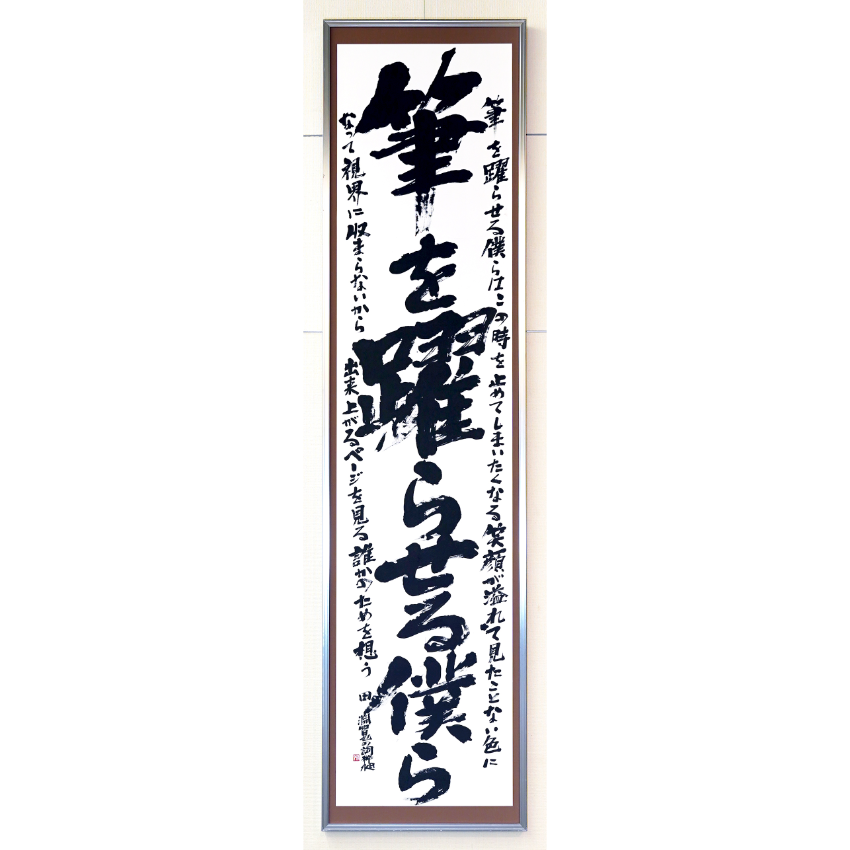 筆を躍らせる僕ら
筆を躍らせる僕らはこの時を止めてしまいたくなる笑顔が溢れて見たことない色に
なって視界に収まらないから 出来上がるページを見る誰かのためを想う